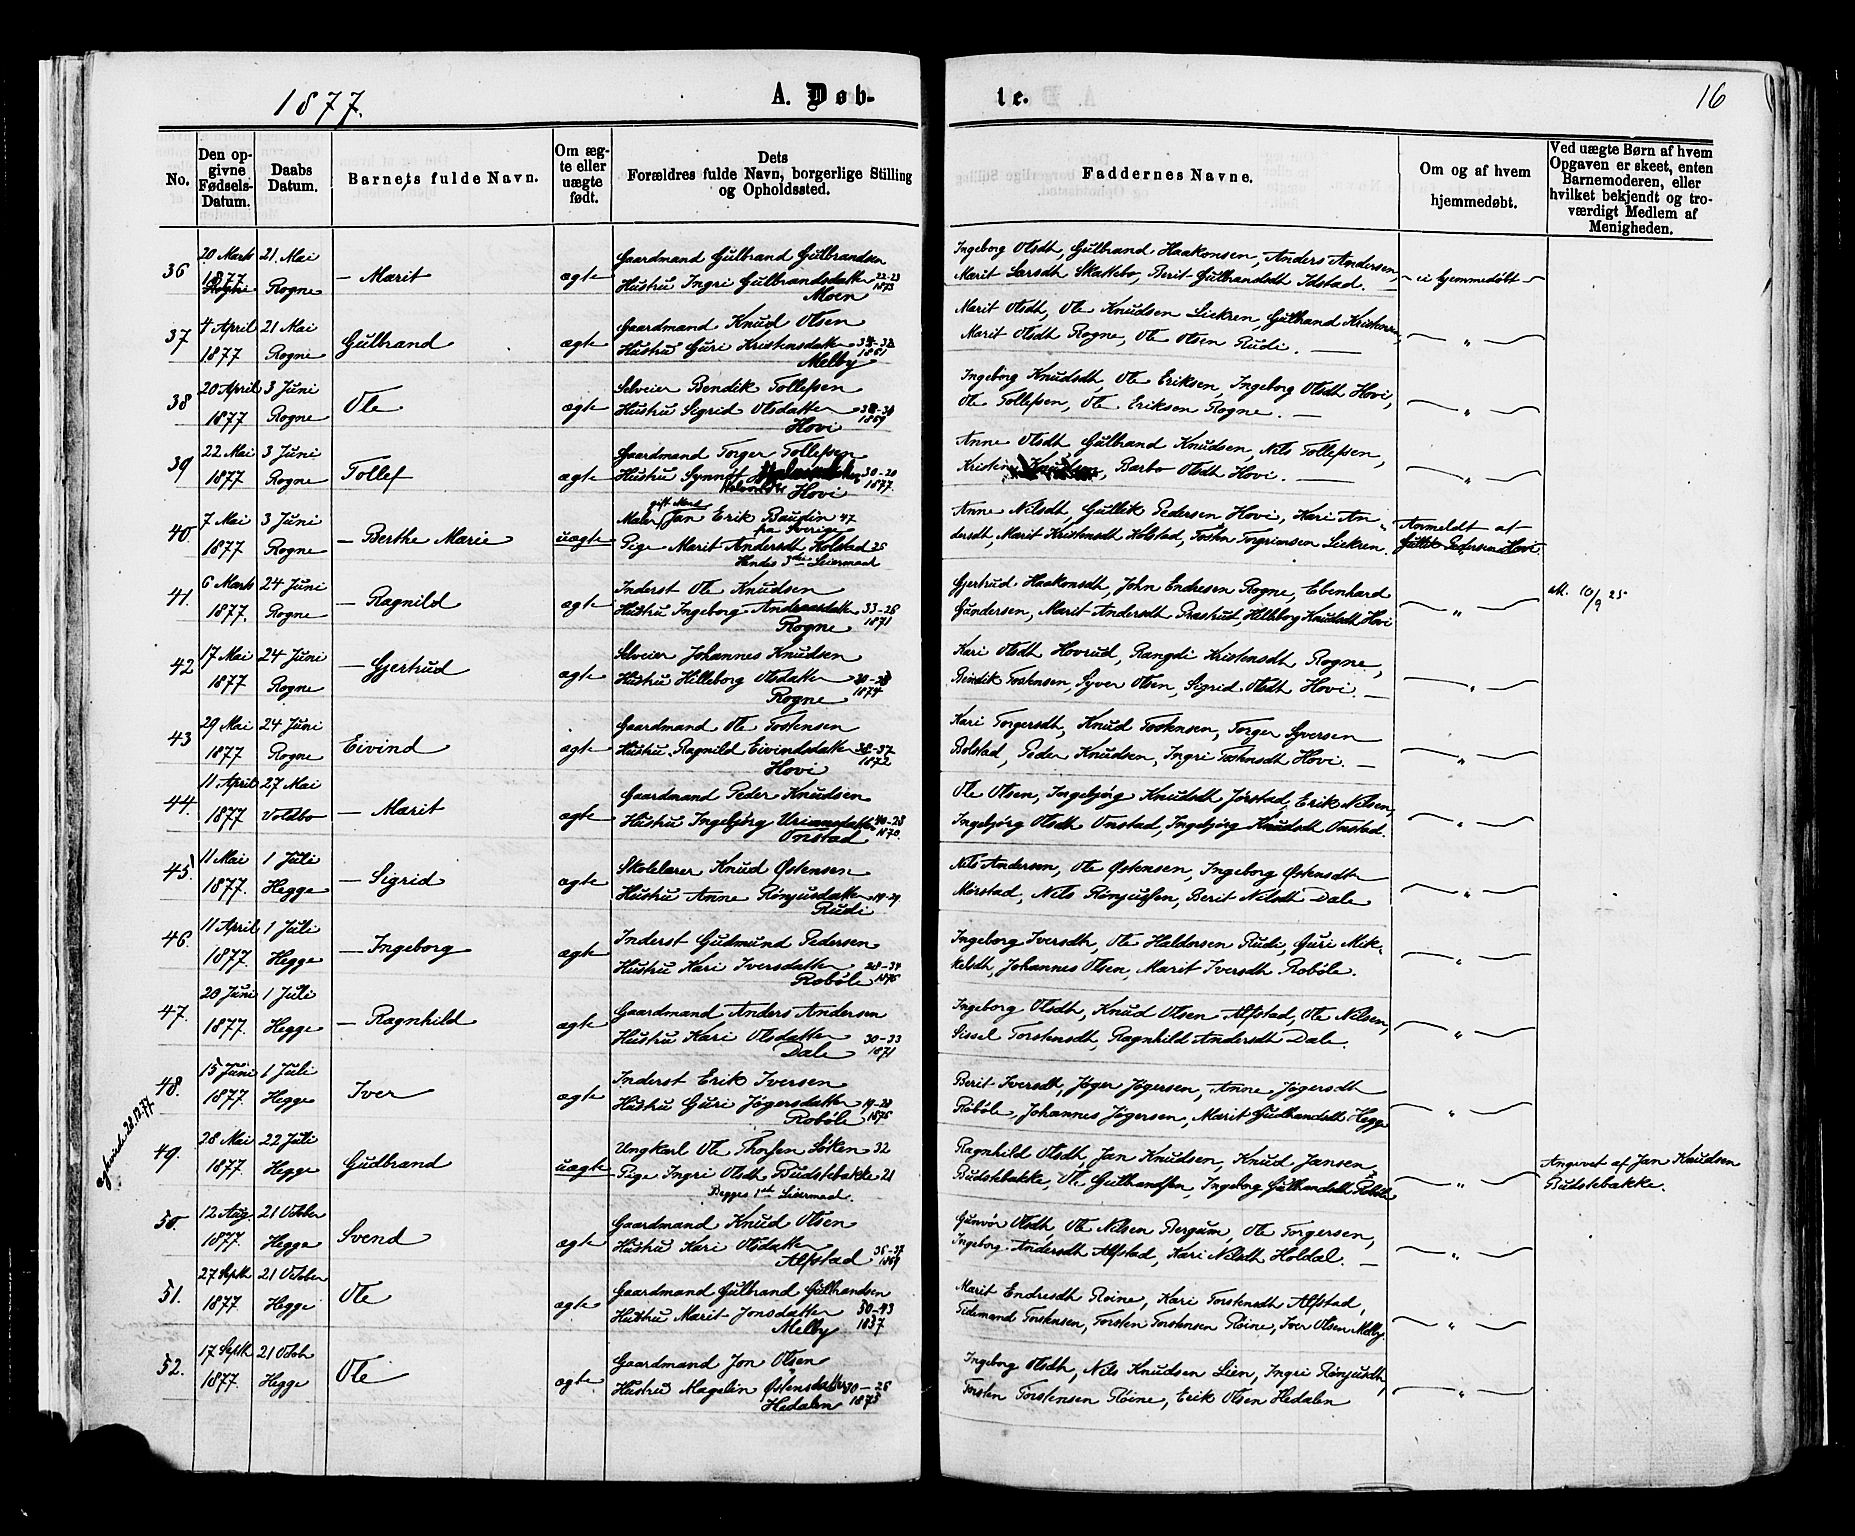 1877.
A. Døb-
te.
16
No.
Den opgivne Fødsels-Datum.
Daabs Datum.
Barnets fulde Navn.
Om ægte eller uægte født.
Dets Forældres fulde Navn, borgerlige Stilling og Opholdssted.
Faddernes Navne.
Om og af hvem hjemmedøbt.
Ved uægte Børn af hvem Opgaven er skeet, enten Barnemoderen, eller hvilket bekjendt og troværdigt Medlem af Menigheden.
36 20 Marts 21. Mai Gaardmand Gulbrand Gulbrandsen Ingeborg Olsdt, Gulbrand Haakonsen, Anders Andersen,
1877 Rogne – Marit ægte Hustru Ingri Gulbrandsdatter 22-23 1873 Marit Larsdt Skattebo, Berit Gulbrandsdt Idstad. – ei hjemmedøbt –
Moen
37 4 April 21 Mai Gaardmand Knud Olsen Marit Olsdt, Ole Knudsen Liekren, Gulbrand Kristensen,
1877 Rogne Gulbrand ægte Hustru Guri Kristensdatter Marit Olsdt Rogne, Ole Olsen Rudi. "
Melby 1861
38 20 April 3 Juni Selveier Bendik Tollefsen Ingeborg Knudsdt, Ole Eriksen, Ingeborg Olsdt Hovi,
1877 Rogne Ole ægte Hustru Sigrid Olsdatter Ole Tollefsen, Ole Eriksen Rogne. "
Hovi 1869
39 22 Mai 3 Juni Gaardmand Torger Tollefsen Anne Olsdt, Gulbrand Knudsen, Nils Tollefsen,
1877 Rogne Tollef ægte Hustru Synnøv 30-20 1877 Kristin, Barbo Olsdt Hovi. "
Hovi
40 7 Mai 3 Juni gift Mand Maler Jan Erik Baudin 47 fra Sverige Anne Nilsdt, Gullik Pedersen Hovi, Kari An- Anmeldt af
1877 Rogne – Berthe Marie uægte Pige Marit Andersdt Kolstad 25 dersdt, Marit Kristensdt Kolstad, Torstn Torgrimsen Liekren. Gullik Pedersen Hovi.
Hendes 3die Leiermaal
41. 6 Marts 24 Juni Inderst Ole Knudsen Gjertrud Haakonsdt, John Endresen Rogne, Ebenhard
1877. Rogne – Ragnild ægte Hustru Ingeborg Andersdatter 33-26 1871 Gundersen, Marit Andersdt Præstrud, Hilleborg Knudsdt Hovi " at. 10/9 25
Rogne
42 17 Mai 24 Juni Selveier Johannes Knudsen Kari Olsdt Hovrud, Rangdi Kristensdt Rogne,
1877 Rogne – Gjertrud ægte Hustru Hilleborg Olsdatter 1874 Bendik Torstensen, Syver Olsen, Sigrid Olsdt Hovi. "
Rogne
43 29 Mai 24 Juni Gaardmand Ole Torstensen Kari Torgersdt, Knud Torstensen, Torger Syversen
1877 Rogne Eivind ægte Hustru Ragnild Eivindsdatter 1872 Bolstad, Peder Knudsen, Ingri Torstensdt Hovi. "
Hovi
44. 11 April 27 Mai Gaardmand Peder Knudsen Ole Olsen, Ingebjørg Knudsdt Jørstad, Erik Nilsen,
1877 Voldbo – Marit ægte Hustru Ingebjørg Uriansdatter 40-28 1870. Ingebjørg Olsdt Onstad, Ingebjørg Knudsdt Onstad. "
Onstad
45. 11 Mai 1 Juli Skolelærer Knud Østensen Nils Andersen, Ole Østensen, Ingeborg Østensdt
1877. Hegge – Sigrid ægte Hustru Anne Rønjusdatter Mørstad, Nils Rønjussen, Berit Nilsdt Dale "
Rudi
46 11 April 1 Juli Inderst Gudmund Pedersen Ingeborg Iversdt, Ole Haldorsen Rudi, Guri Mik-
1877. Hegge – Ingeborg ægte Hustru Kari Iversdatter 28-34 1876 kelsdt, Johannes Olsen, Marit Iversdt Robøle. "
Robøle
47. 20 Juni 1 Juli Gaardmand Anders Andersen Ingeborg Olsdt, Knud Olsen Alfstad, Ole Nilsen,
1877. Hegge – Ragnhild ægte Hustru Kari Olsdatter 30-33 1871 Sissel Torstensdt, Ragnhild Andersdt Dale. "
Dale
48. 15 Juni 1 Juli Inderst Erik Iversen Berit Iversdt, Jøger Jøgersen, Anne Jøgersdt
1877. Hegge Iver ægte Hustru Guri Jøgersdatter Robøle, Johannes Jøgersen, Marit Gudbrandsdt Hegge "
Robøle
28.12.77
49. 28 Mai 22 Juli Ungkarl Ole Thorsen Løken 32 Ragnhild Olsdt, Jan Knudsen, Knud Jansen, Angivet af Jan Knudsen
1877. Hegge Gudbrand uægte Pige Ingri Olsdt Budstebakke 21 Budstebakke, Ole Gulbrandsen, Ingeborg Gulbrandsdt Robøle " Budstebakke.
Begges 1ste Leiermaal.
50. 12 Aug. 21 October Gaardmand Knud Olsen Gunvör Olsdt, Ole Nilsen Bergum, Ole Torgersen,
1877. Hegge Svend ægte Hustru Kari Olsdatter 1869 Ingeborg Andersdt Alfstad, Kari Nilsdt Holdal. "
Alfstad
51. 27 Septb 21 October Gaardmand Gulbrand Gulbrandsen Marit Endresdt Roine, Kari Torstensdt Alfstad,
1877. Hegge Ole ægte Hustru Marit Jonsdatter Tidemand Torstensen, Torsten Torstensen Röine, Iver Olsen Melby. "
Melby
52. 17 Septb 21 Octob Gaardmand Jon Olsen Ingeborg Olsdt, Nils Knudsen Lien, Ingri Rönjusdt,
1877. Hegge Ole ægte. Hustru Magelin Østensdatter 30-26 1875 Torsten Torstensen Röine, Erik Olsen Hedalen "
Hedalen